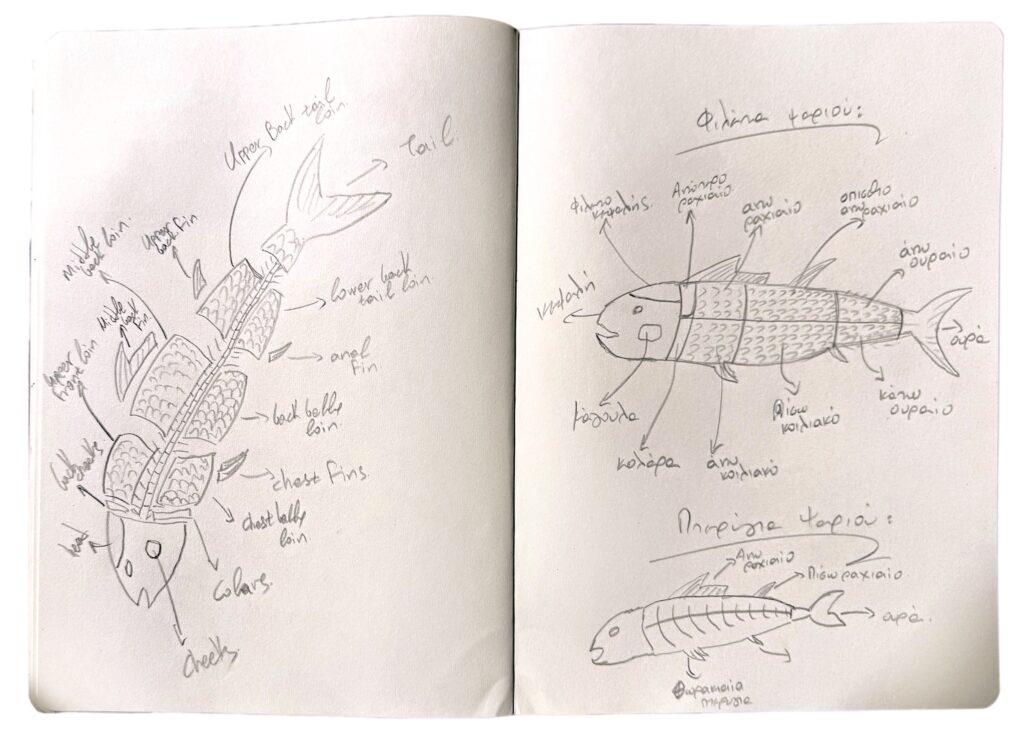 Upper Back tail
loin.
Tail.
Upper
back fin
Middle
back loin.
Middle
back
fin.
Upper
front loin
lower back
tail loin.
anal
fin
back belly
loin.
chest fins.
chest belly
loin.
cheeks
head
Colars.
Cheeks
Φιλέτα ψαριού:
Φιλέτο
κεφαλής
ραχιαίο
ανω
ραχιαίο
οπισθιο
ανωραχιαίο
άνω
ουραίο
κεφαλή
ουρά
Μάγουλα
κολάρα
άνω
κοιλιακό
Πίσω
κοιλιακό
κάτω
ουραίο
Πτερύγια ψαριού:
Ανω
ραχιαίο
Πίσω ραχιαίο
ουρά.
Θωρακικά
πτερυγια